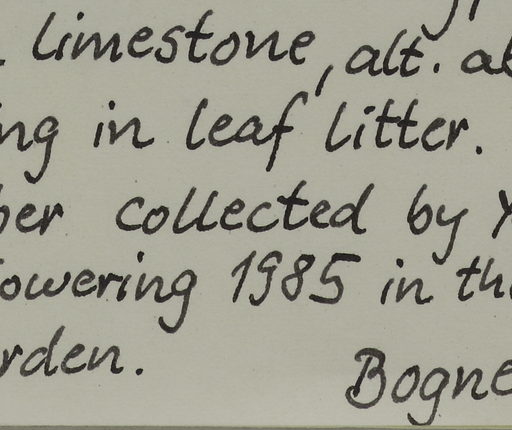 limestone, alt. ab
ng in leaf litter.
ber collected by Y
owering 1985 in the
rden.
Bogne